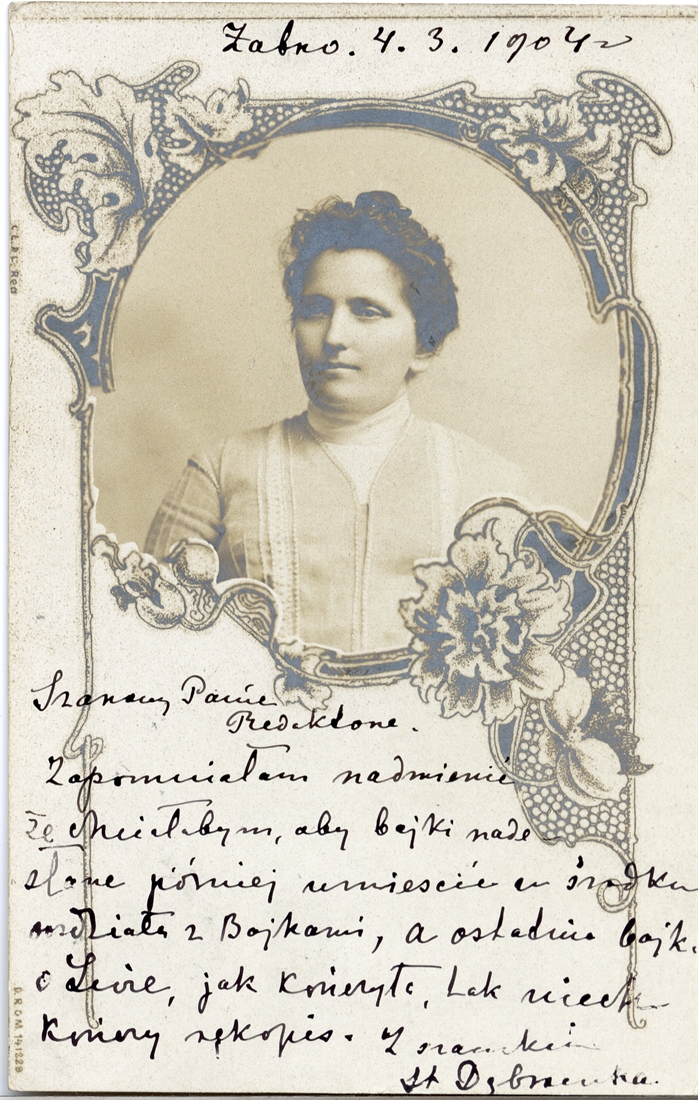 Żabno. 4. 3. 1904 r
Szanowny Panie
Redaktorze.
Zapomniałam nadmienić
że chciałabym, aby bajki nade-
słane później umieścić w środku
rozdziału z Bajkami, a ostatnia bajk.
o Lwie, jak kończyła, tak niech
kończy rękopis. Z szacunkiem
St Dąbrowska.
D.R.G.M. 141229